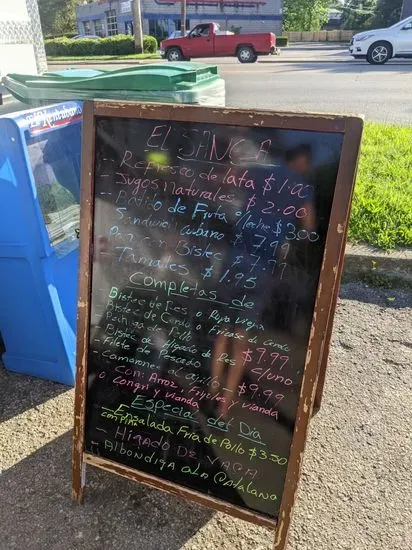 EL SANGA
- Refresco de lata $1.00
- Jugos naturales $2.00
- Batido de Fruta c/leche $3.00
Sandwich Cubano $7.99
- Pan con Bistec $7.99
- Tamales $1.95
Completas de
Bistec de Res o Ropa Vieja
Bistec de Cerdo o Fricase de Cerdo
Pechuga de Pollo
Bistec de Higado de Res $9.99
Filete de Pescado c/uno
- Camarones al ajillo - $9.99
con: Arroz, Frijoles y vianda
o congri y vianda
Especial del Dia
- Ensalada Fria de Pollo $3.50
con Piña
- HIGADO DE VACA
- Albondiga a La Catalana